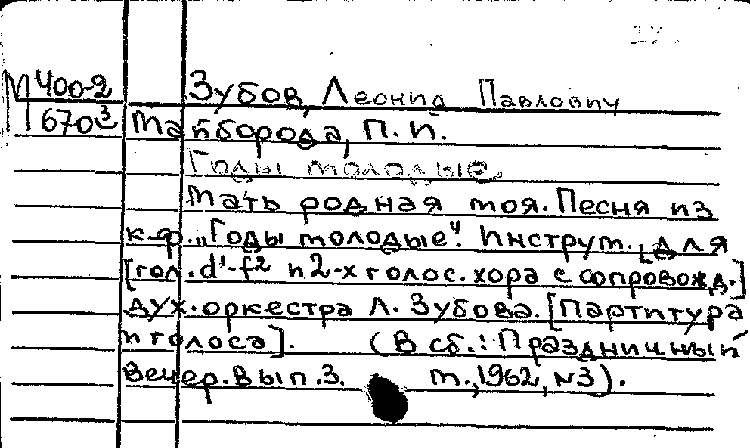 М 400-2 Зубов, Леонид Павлович
670 3 Майборода, П.И.
Годы молодые.
Мать родная моя. Песня из
к-ф. „Годы молодые“. Инструт. для
[гол. d'-f2 и 2-х голос. хора с сопровожд.]
дух. оркестра Л. Зубова. [Партитура
и голоса]. (В сб.: Праздничный
вечер. Вып. 3. М., 1962, №3).